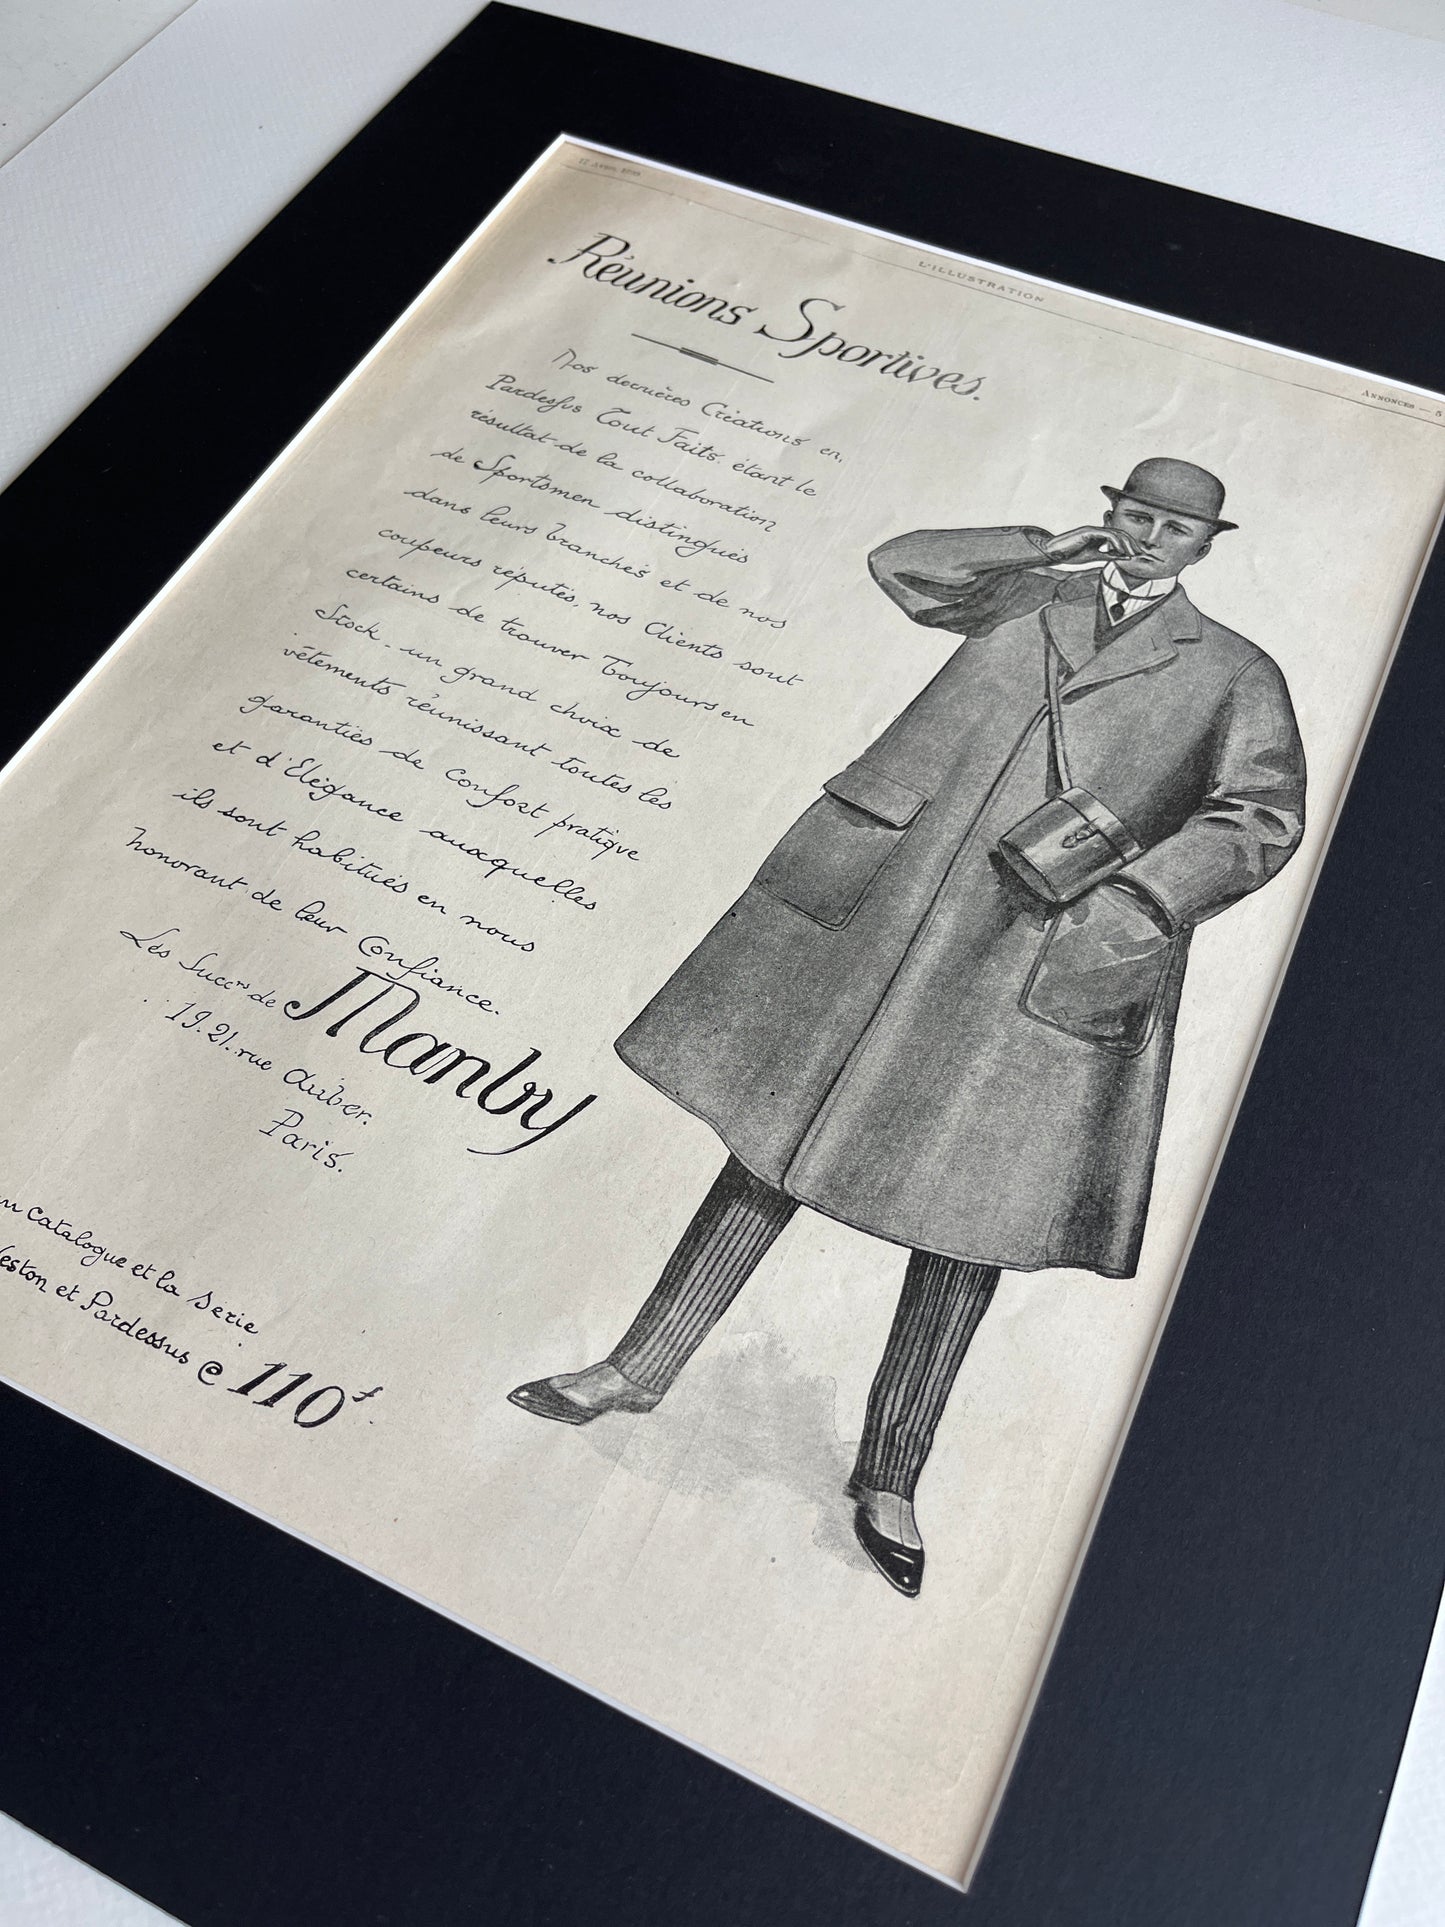 17 Avril
L'ILLUSTRATION
Annonces — 5
Réunions Sportives.
Nos dernières Créations en
Pardessus Tout Faits. étant le
résultat de la collaboration
de Sportsmen distingués
dans leurs branches et de nos
coupeurs réputés, nos Clients sont
certains de trouver Toujours en
Stock - un grand choix de
vêtements réunissant toutes les
garanties de Confort pratique
et d'Élégance auxquelles
ils sont habitués en nous
honorant de leur Confiance.
Les Succrs de Manby
19.21. rue Auber.
Paris.
Catalogue et la Série
Veston et Pardessus @ 110f.